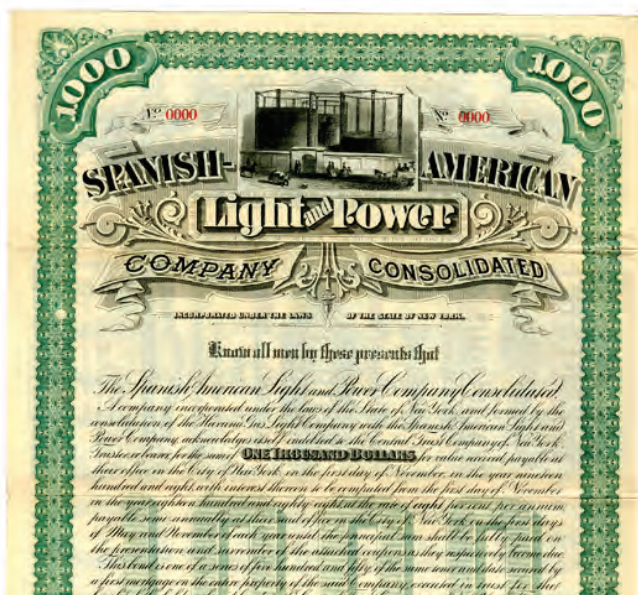 1000 1000
No. 0000 No. 0000
SPANISH- AMERICAN
Light and Power
COMPANY CONSOLIDATED
INCORPORATED UNDER THE LAWS OF THE STATE OF NEW YORK.
Know all men by these presents that
The Spanish American Light and Power Company Consolidated,
A company incorporated under the laws of the State of New York and formed by the
consolidation of the Havana Gas Light Company with the Spanish American Light and
Power Company, acknowledges itself indebted to the Central Trust Company of New York,
Trustee, or bearer, for the sum of ONE THOUSAND DOLLARS, for value received, payable at
their office in the City of New York, on the first day of November, in the year nineteen
hundred and eight, with interest thereon to be computed from the first day of November
in the year eighteen hundred and eighty eight, at the rate of eight per cent. per annum,
payable semi-annually at their said office in the City of New York on the first days
of May and November of each year until the principal sum shall be fully paid on
the presentation and surrender of the attached coupons as they respectively become due.
This bond is one of a series of five hundred and fifty, of the same tenor and date secured by
a first mortgage on the entire property of the said Company, executed in trust for the